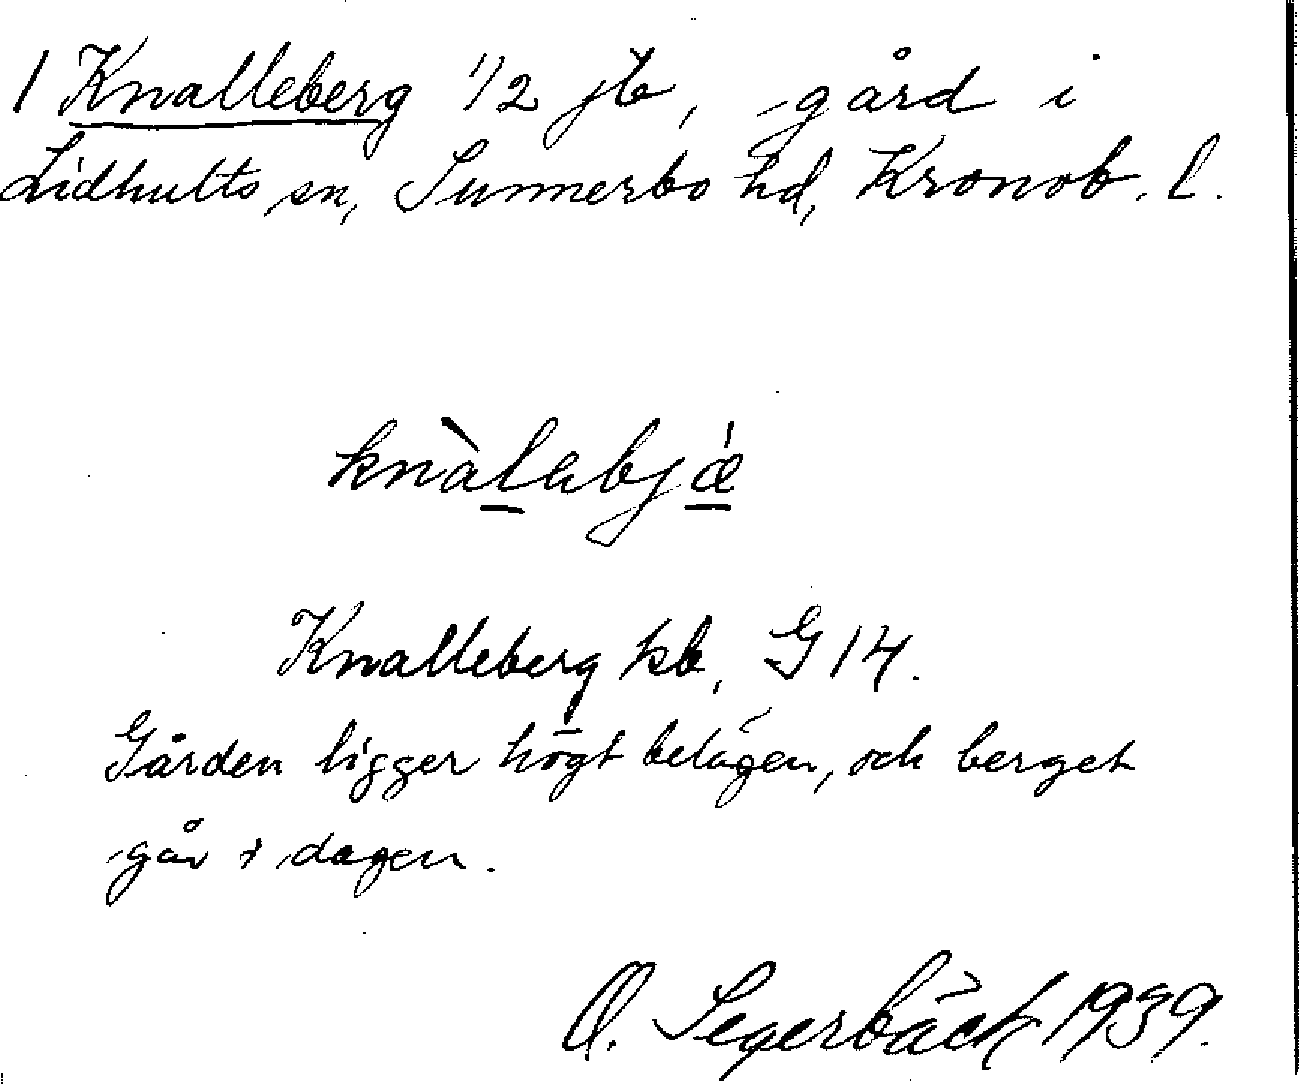 1 Knalleberg 1/2 jb, gård i
Lidhults sn, Sunnerbo hd, Kronob. l.
knàlabjǽ
Knalleberg kb, G 14.
Gården ligger högt belägen, och berget
går i dagen.
O. Segerbäck 1939.